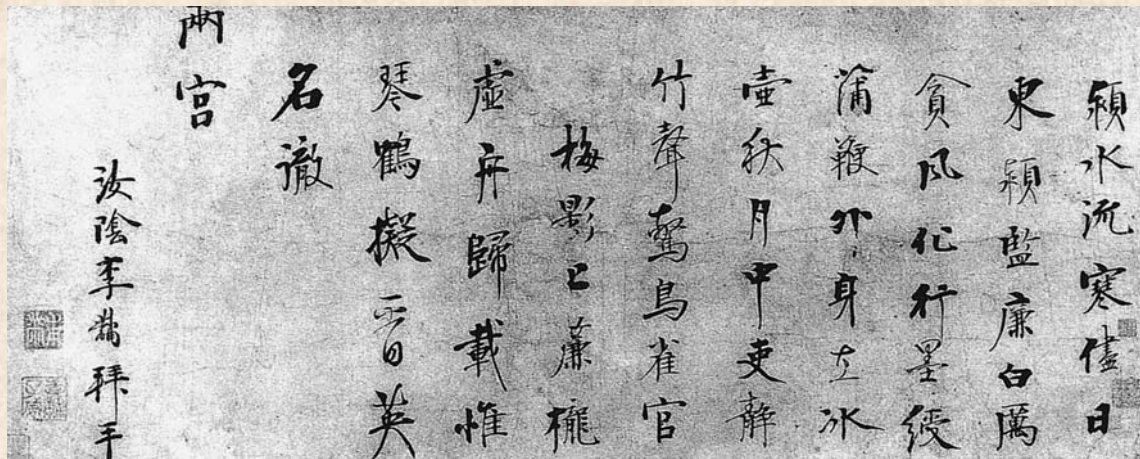 潁水流寒儘日
東潁監廉白厲
貪風化行墨綬
蒲鞭外身立冰
壺秋月中吏靜
竹聲驚鳥雀官
梅影上簾櫳
虛舟歸載惟
琴鶴擬英
名徹
兩宮
汝陰李拜手